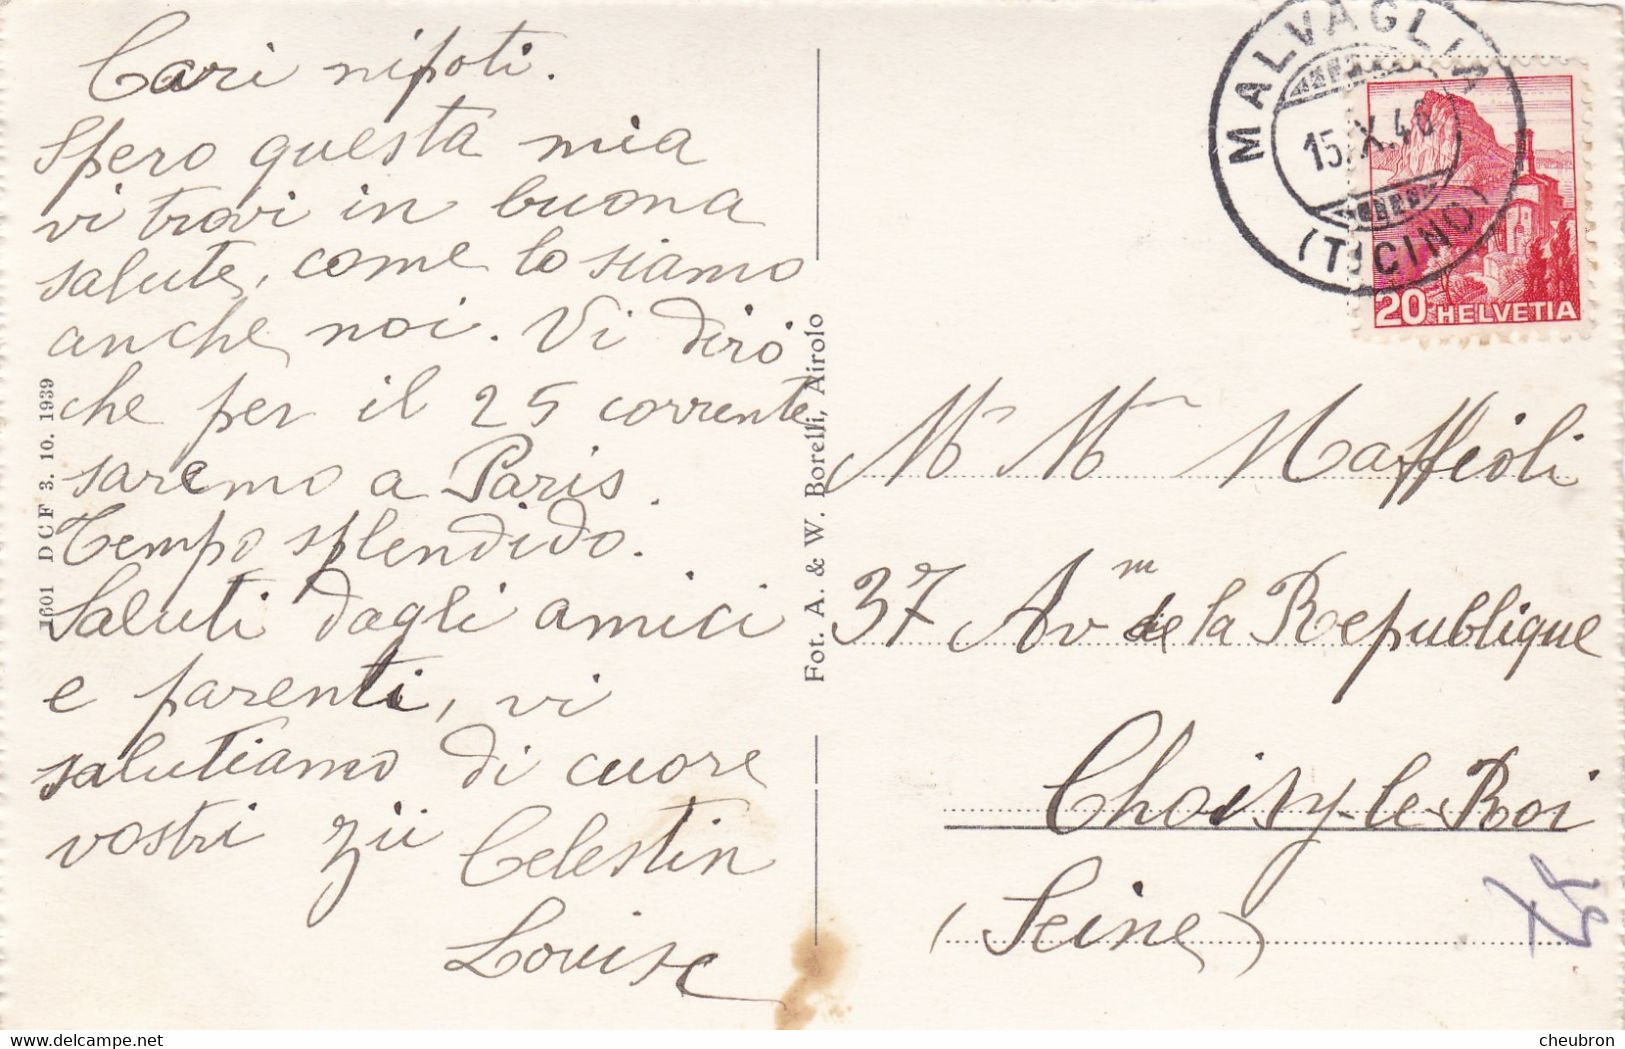 Cari nipoti.
Spero questa mia
vi trovi in buona
salute, come lo siamo
anche noi. Vi dirò
che per il 25 corrente
saremo a Paris.
Tempo splendido.
Saluti dagli amici
e parenti, vi
salutiamo di cuore
vostri zii Celestin
Louise
1601 DCF 3. 10. 1939
Fot. A. & W. Borelli, Airolo
MALVAGLIA
15.X.40
(TICINO)
20 HELVETIA
Mr Mm Maffioli
37 Avm de la Republique
Choisy-le-Roi
(Seine)
delcampe.net
cheubron